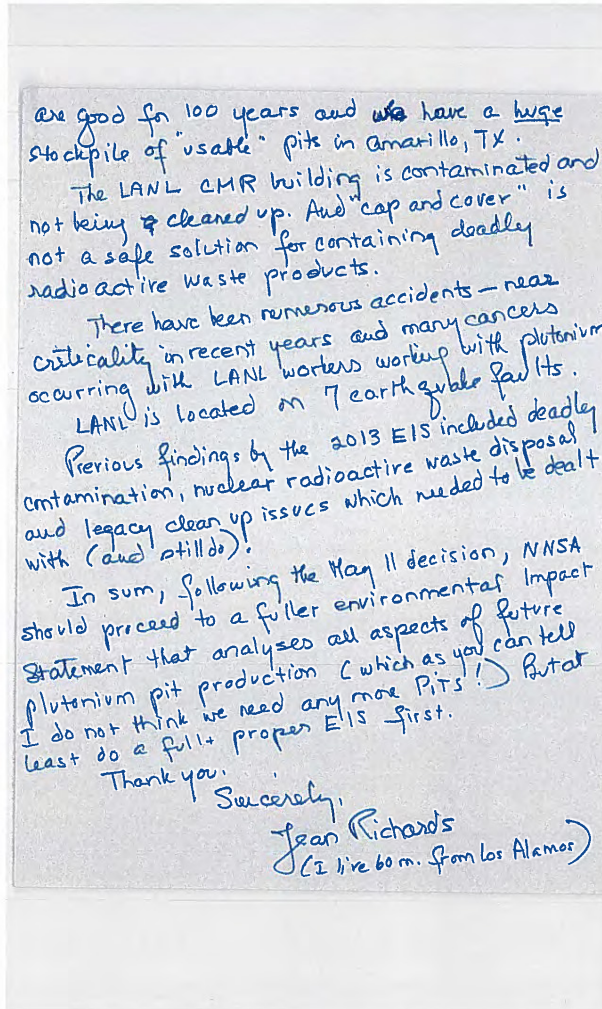 are good for 100 years and we have a huge
stockpile of "usable" pits in Amarillo, TX.
The LANL CMR building is contaminated and
not being cleaned up. And "cap and cover" is
not a safe solution for containing deadly
radioactive waste products.
There have been numerous accidents – near
criticality in recent years and many cancers
occurring with LANL workers working with plutonium
LANL is located on 7 earthquake faults.
Previous findings by the 2013 EIS included deadly
contamination, nuclear radioactive waste disposal
and legacy clean up issues which needed to be dealt
with (and still do)!
In sum, following the May 11 decision, NNSA
should proceed to a fuller environmental Impact
Statement that analyses all aspects of future
plutonium pit production (which as you can tell
I do not think we need any more PiTS!) But at
least do a full + proper EIS first.
Thank you.
Sincerely,
Jean Richards
(I live 60 m. from Los Alamos)